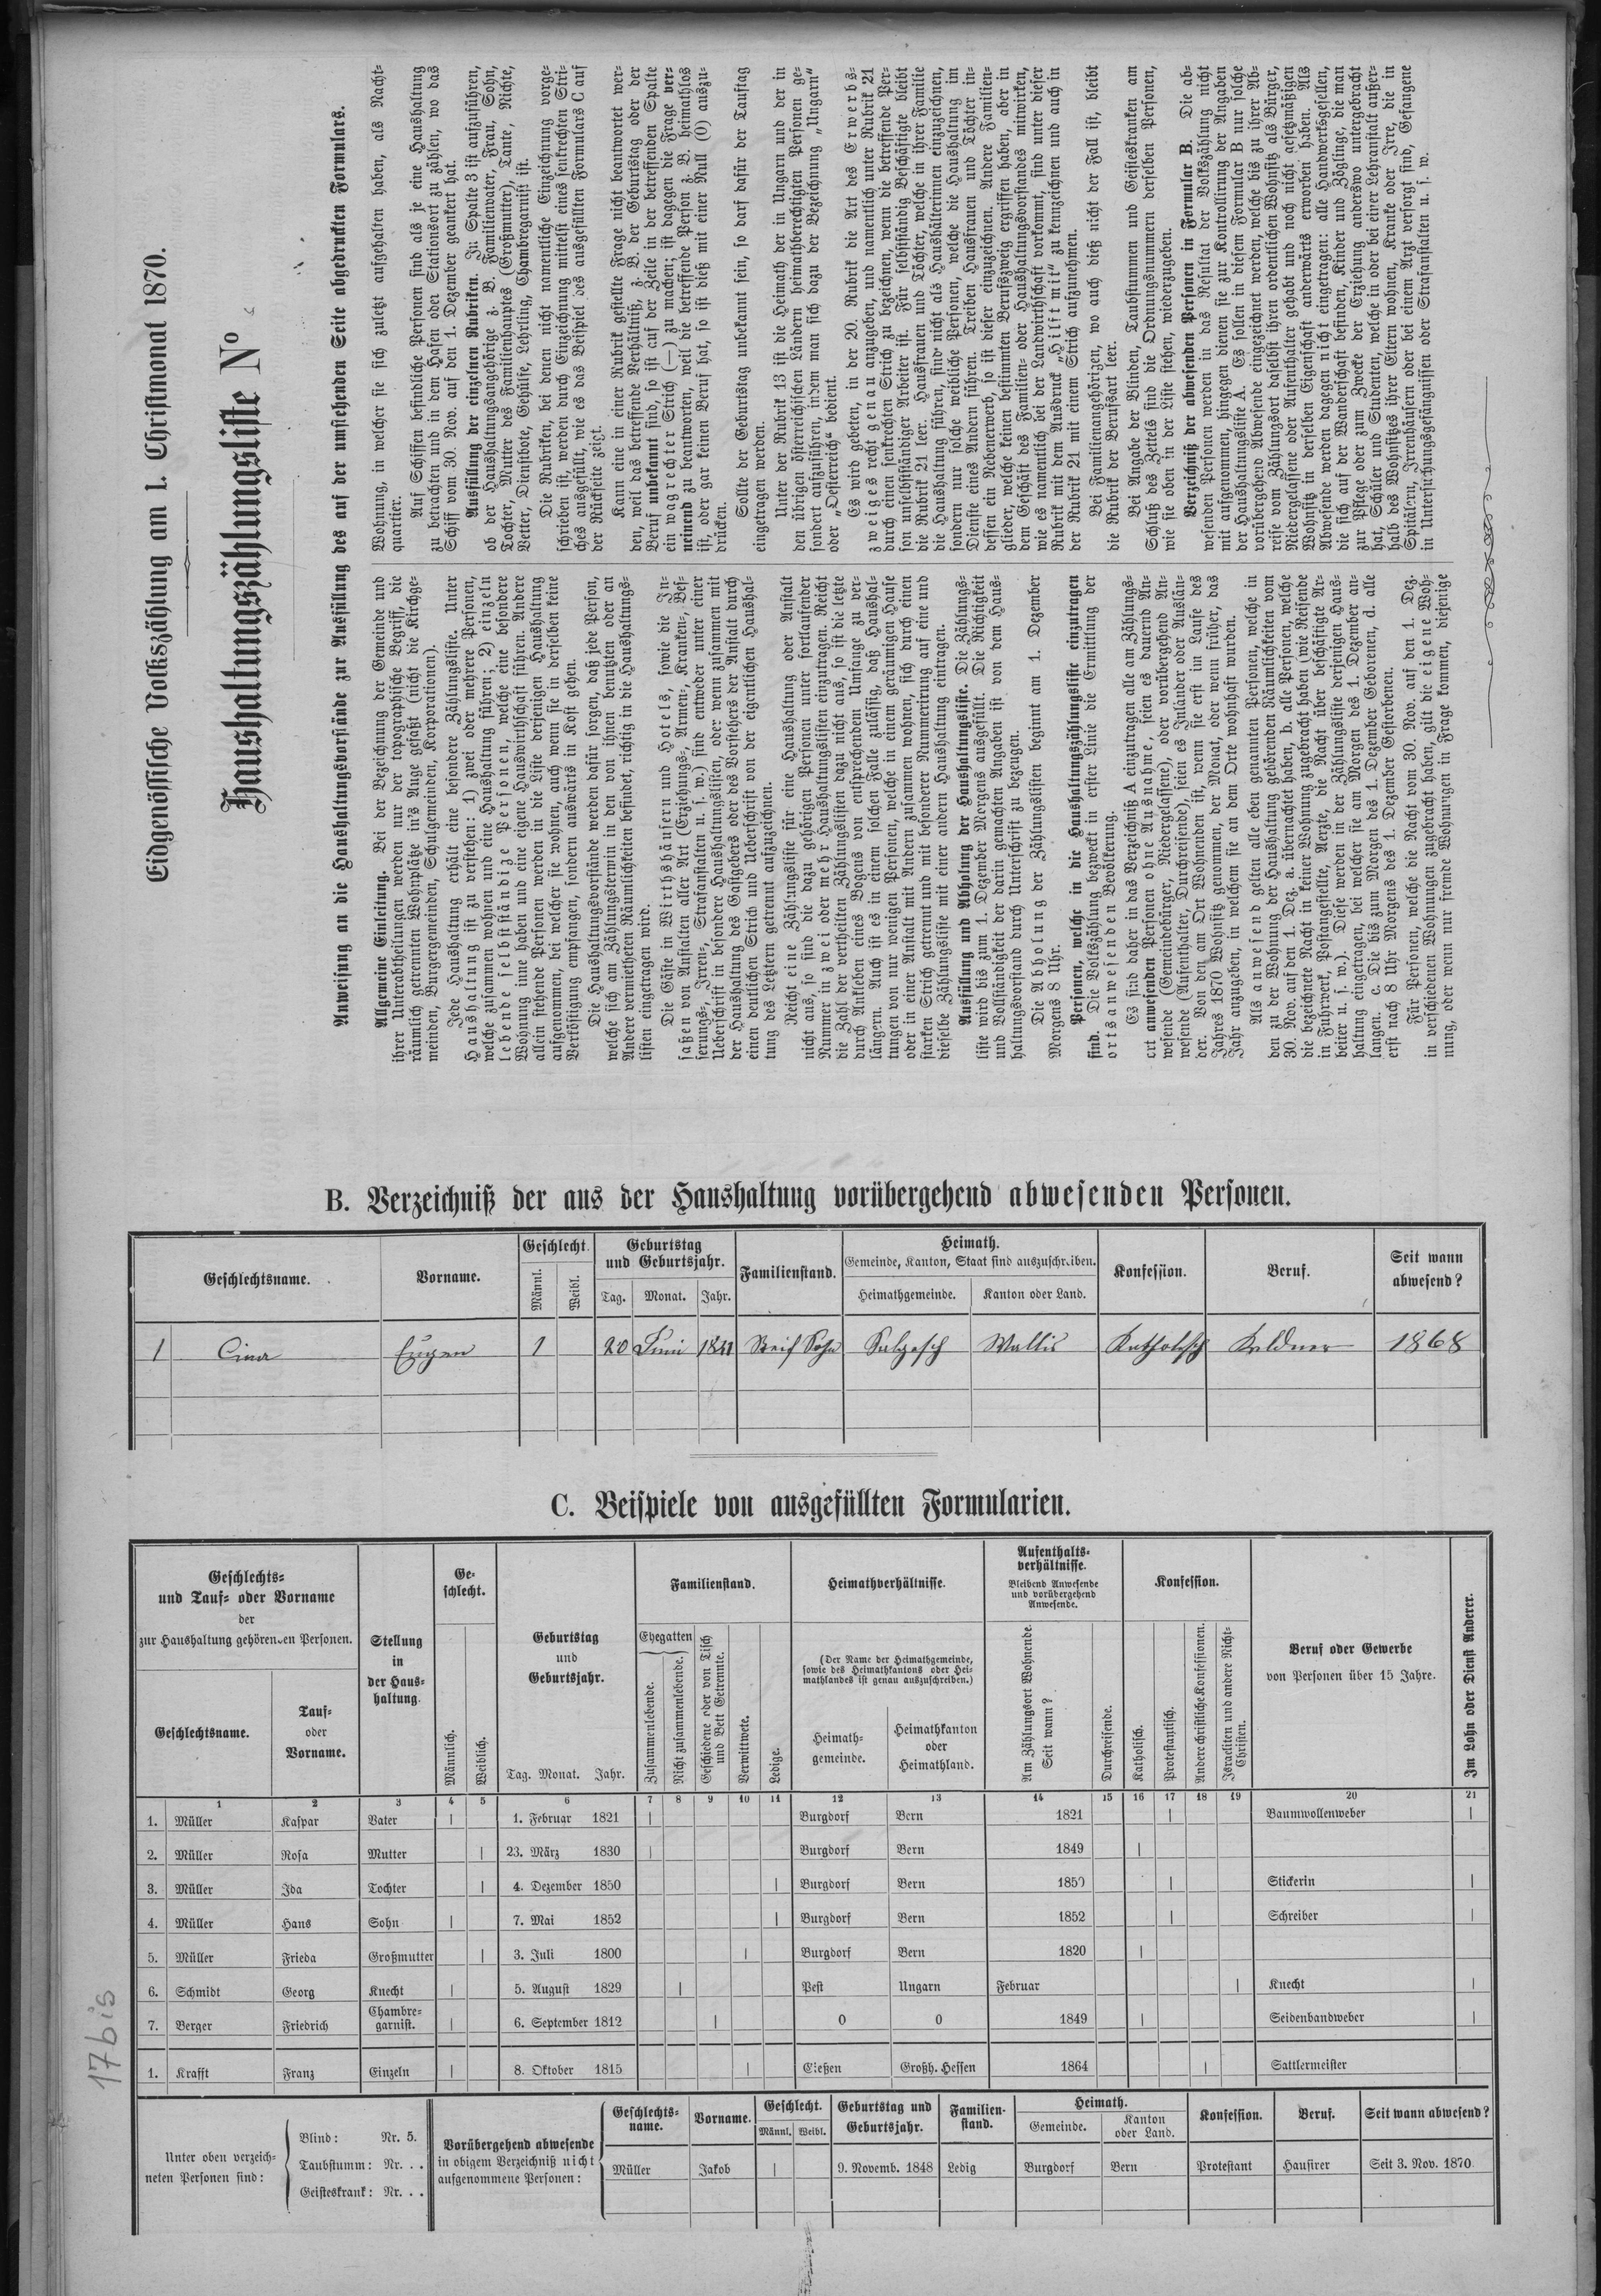 Eidgenössische Volkszählung am 1. Christmonat 1870.
Haushaltungszählungsliste No
Anweisung an die Haushaltungsvorstände zur Ausfüllung des auf der umstehenden Seite abgedruckten Formulars.
Allgemeine Einleitung. Bei der Bezeichnung der Gemeinde und
ihrer Unterabtheilungen werden nur der topographische Begriff, die
räumlich getrennten Wohnplätze in's Auge gefaßt (nicht die Kirchge-
meinden, Burgergemeinden, Schulgemeinden, Korporationen).
Jede Haushaltung erhält eine besondere Zählungsliste. Unter
Haushaltung ist zu verstehen: 1) zwei oder mehrere Personen,
welche zusammen wohnen und eine Haushaltung führen; 2) einzeln
lebende selbstständige Personen, welche eine besondere
Wohnung inne haben und eine eigene Hauswirthschaft führen. Andere
allein stehende Personen werden in die Liste derjenigen Haushaltung
aufgenommen, bei welcher sie wohnen, auch wenn sie in derselben keine
Verköstigung empfangen, sondern auswärts in Kost gehen.
Die Haushaltungsvorstände werden dafür sorgen, daß jede Person,
welche sich am Zählungstermin in den von ihnen benutzten oder an
Andere vermietheten Räumlichkeiten befindet, richtig in die Haushaltungs-
listen eingetragen wird.
Die Gäste in Wirthshäusern und Hotels, sowie die In-
saßen von Anstalten aller Art (Erziehungs-, Armen-, Kranken-, Bes-
serungs-, Irren-, Strafanstalten u. s. w.) sind entweder unter einer
Ueberschrift in besondere Haushaltungslisten, oder wenn zusammen mit
der Haushaltung des Gastgebers oder des Vorstehers der Anstalt durch
einen deutlichen Strich und Ueberschrift von der eigentlichen Haushal-
tung des Letztern getrennt aufzuzeichnen.
Reicht eine Zählungsliste für eine Haushaltung oder Anstalt
nicht aus, so sind die dazu gehörigen Personen unter fortlaufender
Nummer in zwei oder mehr Haushaltungslisten einzutragen. Reicht
die Zahl der vertheilten Zählungslisten dazu nicht aus, so ist die letzte
durch Ankleben eines Bogens von entsprechendem Umfange zu ver-
längern. Auch ist es in einem solchen Falle zulässig, daß Haushal-
tungen von nur wenigen Personen, welche in einem geräumigen Hause
oder in einer Anstalt mit Andern zusammen wohnen, sich durch einen
starken Strich getrennt und mit besonderer Nummerirung auf eine und
dieselbe Zählungsliste mit einer andern Haushaltung eintragen.
Ausfüllung und Abholung der Haushaltungsliste. Die Zählungs-
liste wird bis zum 1. Dezember Morgens ausgefüllt. Die Richtigkeit
und Vollständigkeit der darin gemachten Angaben ist von dem Haus-
haltungsvorstand durch Unterschrift zu bezeugen.
Die Abholung der Zählungslisten beginnt am 1. Dezember
Morgens 8 Uhr.
Personen, welche in die Haushaltungszählungsliste einzutragen
sind. Die Volkszählung bezweckt in erster Linie die Ermittlung der
ortsanwesenden Bevölkerung.
Es sind daher in das Verzeichniß A einzutragen alle am Zählungs-
ort anwesenden Personen ohne Ausnahme, seien es dauernd An-
wesende (Gemeindebürger, Niedergelassene), oder vorübergehend An-
wesende (Aufenthalter, Durchreisende), seien es Inländer oder Auslän-
der. Von den am Ort Wohnenden ist, wenn sie erst im Laufe des
Jahres 1870 Wohnsitz genommen, der Monat, oder wenn früher, das
Jahr anzugeben, in welchem sie an dem Orte wohnhaft wurden.
Als anwesend gelten alle eben genannten Personen, welche in
den zu der Wohnung der Haushaltung gehörenden Räumlichkeiten vom
30. Nov. auf den 1. Dez. a. übernachtet haben, b. alle Personen, welche
die bezeichnete Nacht in keiner Wohnung zugebracht haben (wie Reisende
in Fuhrwerk, Postangestellte, Aerzte, die Nacht über beschäftigte Ar-
beiter u. s. w.). Diese werden in der Zählungsliste derjenigen Haus-
haltung eingetragen, bei welcher sie am Morgen des 1. Dezember an-
langen. c. Die bis zum Morgen des 1. Dezember Geborenen, d. alle
erst nach 8 Uhr Morgens des 1. Dezember Gestorbenen.
Für Personen, welche die Nacht vom 30. Nov. auf den 1. Dez.
in verschiedenen Wohnungen zugebracht haben, gilt die eigene Woh-
nung, oder wenn nur fremde Wohnungen in Frage kommen, diejenige
Wohnung, in welcher sie sich zuletzt aufgehalten haben, als Nacht-
quartier.
Auf Schiffen befindliche Personen sind als je eine Haushaltung
zu betrachten und in dem Hafen oder Stationsort zu zählen, wo das
Schiff vom 30. Nov. auf den 1. Dezember geankert hat.
Ausfüllung der einzelnen Rubriken. In Spalte 3 ist aufzuführen,
ob der Haushaltungsangehörige z. B. Familienvater, Frau, Sohn,
Tochter, Mutter des Familienhauptes (Großmutter), Tante, Nichte,
Vetter, Dienstbote, Gehülfe, Lehrling, Chambregarnist ist.
Die Rubriken, bei denen nicht namentliche Einzeichnung vorge-
schrieben ist, werden durch Einzeichnung mittelst eines senkrechten Stri-
ches ausgefüllt, wie es das Beispiel des ausgefüllten Formulars C auf
der Rückseite zeigt.
Kann eine in einer Rubrik gestellte Frage nicht beantwortet wer-
den, weil das betreffende Verhältniß, z. B. der Geburtstag oder der
Beruf unbekannt sind, so ist auf der Zeile in der betreffenden Spalte
ein wagrechter Strich (—) zu machen; ist dagegen die Frage ver-
neinend zu beantworten, weil die betreffende Person z. B. heimathlos
ist, oder gar keinen Beruf hat, so ist dieß mit einer Null (0) auszu-
drücken.
Sollte der Geburtstag unbekannt sein, so darf dafür der Tauftag
eingetragen werden.
Unter der Rubrik 13 ist die Heimath der in Ungarn und der in
den übrigen österreichischen Ländern heimathberechtigten Personen ge-
sondert aufzuführen, indem man sich dazu der Bezeichnung „Ungarn“
oder „Oesterreich“ bedient.
Es wird gebeten, in der 20. Rubrik die Art des Erwerbs-
zweiges recht genau anzugeben, und namentlich unter Rubrik 21
durch einen senkrechten Strich zu bezeichnen, wenn die betreffende Per-
son unselbstständiger Arbeiter ist. Für selbstständig Beschäftigte bleibt
die Rubrik 21 leer. Hausfrauen und Töchter, welche in ihrer Familie
die Haushaltung führen, sind nicht als Haushälterinnen einzuzeichnen,
sondern nur solche weibliche Personen, welche die Haushaltung im
Dienste eines Andern führen. Treiben Hausfrauen und Töchter in-
dessen ein Nebenerwerb, so ist dieser einzuzeichnen. Andere Familien-
glieder, welche keinen bestimmten Berufszweig ergriffen haben, aber in
dem Geschäft des Familien- oder Haushaltungsvorstandes mitwirken,
wie es namentlich bei der Landwirthschaft vorkommt, sind unter dieser
Rubrik mit dem Ausdruck „Hilft mit“ zu kennzeichnen und auch in
der Rubrik 21 mit einem Strich aufzunehmen.
Bei Familienangehörigen, wo auch dieß nicht der Fall ist, bleibt
die Rubrik der Berufsart leer.
Bei Angabe der Blinden, Taubstummen und Geisteskranken am
Schluß des Zettels sind die Ordnungsnummern derselben Personen,
wie sie oben in der Liste stehen, wiederzugeben.
Verzeichniß der abwesenden Personen in Formular B. Die ab-
wesenden Personen werden in das Resultat der Volkszählung nicht
mit aufgenommen, hingegen dienen sie zur Kontrollirung der Angaben
der Haushaltungsliste A. Es sollen in diesem Formular B nur solche
vorübergehend Abwesende eingezeichnet werden, welche bis zu ihrer Ab-
reise vom Zählungsort daselbst ihren ordentlichen Wohnsitz als Bürger,
Niedergelassene oder Aufenthalter gehabt und noch nicht gesetzmäßigen
Wohnsitz in derselben Eigenschaft anderwärts erworben haben. Als
Abwesende werden dagegen nicht eingetragen: alle Handwerksgesellen,
die sich auf der Wanderschaft befinden, Kinder und Zöglinge, die man
zur Pflege oder zum Zwecke der Erziehung anderswo untergebracht
hat, Schüler und Studenten, welche in oder bei einer Lehranstalt außer-
halb des Wohnsitzes ihrer Eltern wohnen, Kranke oder Irre, die in
Spitälern, Irrenhäusern oder bei einem Arzt versorgt sind, Gefangene
in Untersuchungsgefängnissen oder Strafanstalten u. s. w.
B. Verzeichniß der aus der Haushaltung vorübergehend abwesenden Personen.
Geschlechtsname. Vorname. Geschlecht. Männl. Weibl. Geburtstag und Geburtsjahr. Tag. Monat. Jahr. Familienstand. Heimath. Gemeinde, Kanton, Staat sind auszuschreiben. Heimathgemeinde. Kanton oder Land. Konfession. Beruf. Seit wann abwesend?
1 Cina Eugen 1 20 Juni Sohn Salgesch Wallis Katholisch 1868
C. Beispiele von ausgefüllten Formularien.
Geschlechts- und Tauf- oder Vorname der zur Haushaltung gehörenden Personen. Geschlechtsname. Tauf- oder Vorname.
Stellung in der Haushaltung.
Ge-schlecht. Männlich. Weiblich.
Geburtstag und Geburtsjahr. Tag. Monat. Jahr.
Familienstand. Ehegatten Zusammenlebende. Nicht zusammenlebende. Geschiedene oder von Tisch und Bett Getrennte. Verwittwete. Ledige.
Heimathverhältnisse. (Der Name der Heimathgemeinde, sowie des Heimathkantons oder Heimathlandes ist genau auszuschreiben.) Heimath-gemeinde. Heimathkanton oder Heimathland.
Aufenthalts-verhältnisse. Bleibend Anwesende und vorübergehend Anwesende. Am Zählungsort Wohnende. Seit wann? Durchreisende.
Konfession. Katholisch. Protestantisch. Andere christliche Konfessionen. Israeliten und andere Nicht-Christen.
Beruf oder Gewerbe von Personen über 15 Jahre.
Im Lohn oder Dienst Anderer.
1 2 3 4 5 6 7 8 9 10 11 12 13 14 15 16 17 18 19 20 21
1. Müller Kaspar Vater | 1. Februar 1821 | Burgdorf Bern 1821 | Baumwollenweber |
2. Müller Rosa Mutter | 23. März 1830 | Burgdorf Bern 1849 |
3. Müller Ida Tochter | 4. Dezember 1850 | Burgdorf Bern 1850 | Stickerin |
4. Müller Hans Sohn | 7. Mai 1852 | Burgdorf Bern 1852 | Schreiber |
5. Müller Frieda Großmutter | 3. Juli 1800 | Burgdorf Bern 1820 |
6. Schmidt Georg Knecht | 5. August 1829 | Pest Ungarn Februar | Knecht |
7. Berger Friedrich Chambre-garnist. | 6. September 1812 | 0 0 1849 | Seidenbandweber |
1. Krafft Franz Einzeln | 8. Oktober 1815 | Gießen Großh. Hessen 1864 | Sattlermeister
Unter oben verzeich-neten Personen sind:
Blind: Nr. 5.
Taubstumm: Nr. . .
Geisteskrank: Nr. . .
Vorübergehend abwesende in obigem Verzeichniß nicht aufgenommene Personen:
Geschlechts-name. Vorname. Geschlecht. Männl. Weibl. Geburtstag und Geburtsjahr. Familien-stand. Heimath. Gemeinde. Kanton oder Land. Konfession. Beruf. Seit wann abwesend?
Müller Jakob | 9. Novemb. 1848 Ledig Burgdorf Bern Protestant Hausirer Seit 3. Nov. 1870.
17bis